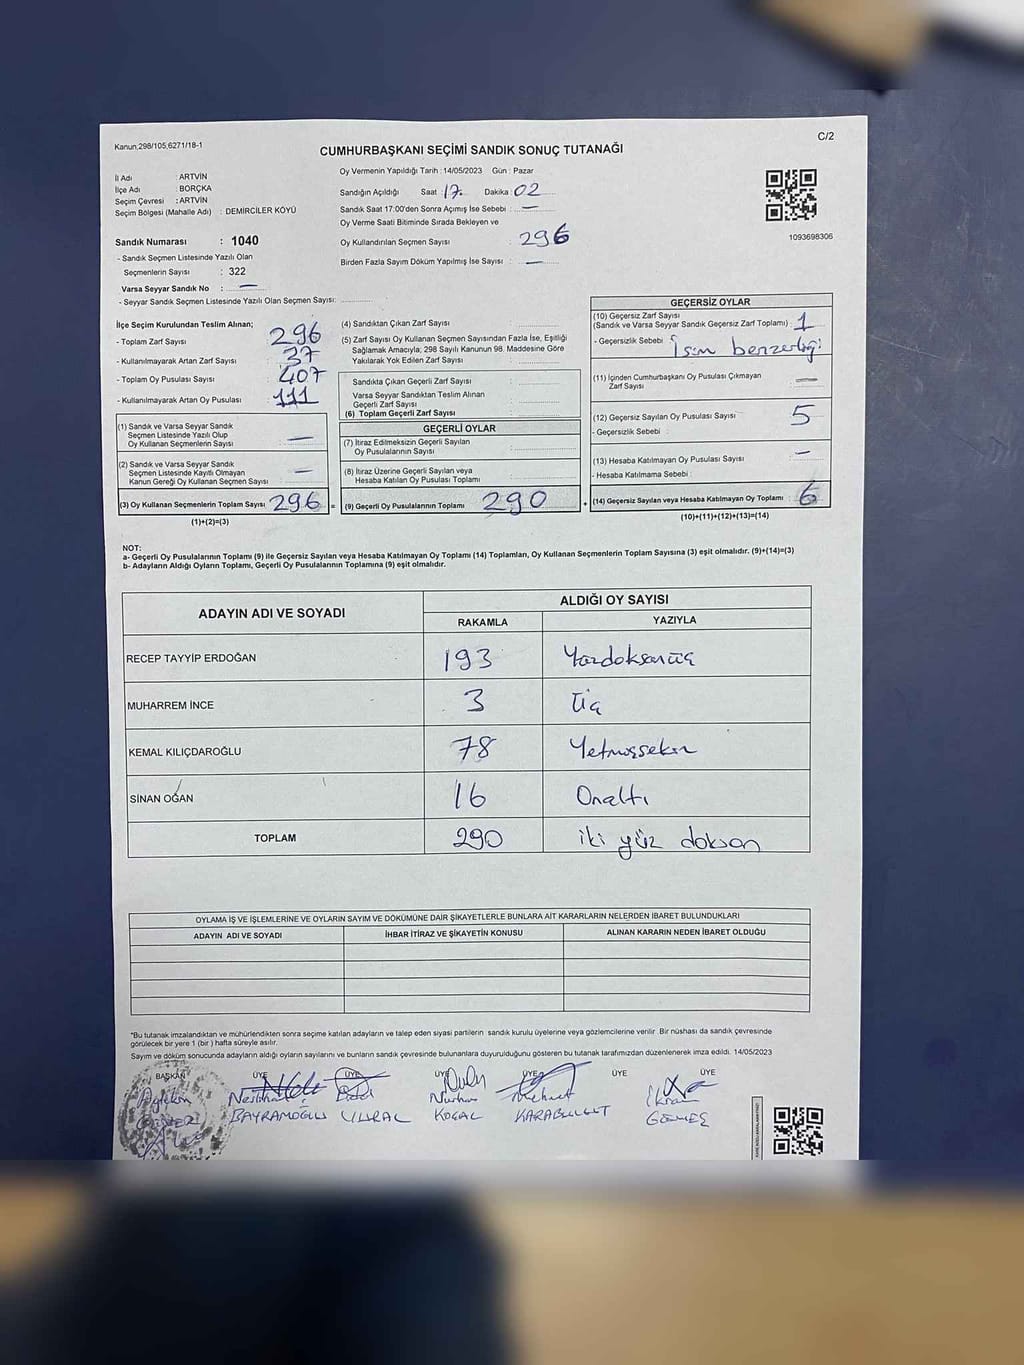 Kanun,298/105,6271/18-1
C/2
CUMHURBAŞKANI SEÇİMİ SANDIK SONUÇ TUTANAĞI
İl Adı : ARTVİN
İlçe Adı : BORÇKA
Seçim Çevresi : ARTVİN
Seçim Bölgesi (Mahalle Adı) : DEMİRCİLER KÖYÜ
Sandık Numarası : 1040
- Sandık Seçmen Listesinde Yazılı Olan
Seçmenlerin Sayısı : 322
Varsa Seyyar Sandık No : —
- Seyyar Sandık Seçmen Listesinde Yazılı Olan Seçmen Sayısı:
Oy Vermenin Yapıldığı Tarih : 14/05/2023 Gün : Pazar
Sandığın Açıldığı Saat : 17. Dakika : 02
Sandık Saat 17:00'den Sonra Açımış İse Sebebi : —
Oy Verme Saati Bitiminde Sırada Bekleyen ve
Oy Kullandırılan Seçmen Sayısı : 296
Birden Fazla Sayım Döküm Yapılmış İse Sayısı : —
1093698306
İlçe Seçim Kurulundan Teslim Alınan;
- Toplam Zarf Sayısı : 296
- Kullanılmayarak Artan Zarf Sayısı : 37
- Toplam Oy Pusulası Sayısı : 407
- Kullanılmayarak Artan Oy Pusulası : 111
(1) Sandık ve Varsa Seyyar Sandık
Seçmen Listesinde Yazılı Olup
Oy Kullanan Seçmenlerin Sayısı : —
(2) Sandık ve Varsa Seyyar Sandık
Seçmen Listesinde Kayıtlı Olmayan
Kanun Gereği Oy Kullanan Seçmen Sayısı : —
(3) Oy Kullanan Seçmenlerin Toplam Sayısı : 296
(1)+(2)=(3)
(4) Sandıktan Çıkan Zarf Sayısı :
(5) Zarf Sayısı Oy Kullanan Seçmen Sayısından Fazla İse, Eşitliği
Sağlamak Amacıyla, 298 Sayılı Kanunun 98. Maddesine Göre
Yakılarak Yok Edilen Zarf Sayısı :
Sandıkta Çıkan Geçerli Zarf Sayısı :
Varsa Seyyar Sandıktan Teslim Alınan
Geçerli Zarf Sayısı :
(6) Toplam Geçerli Zarf Sayısı :
GEÇERLİ OYLAR
(7) İtiraz Edilmeksizin Geçerli Sayılan
Oy Pusulalarının Sayısı :
(8) İtiraz Üzerine Geçerli Sayılan veya
Hesaba Katılan Oy Pusulası Toplamı :
= (9) Geçerli Oy Pusulalarının Toplamı : 290
GEÇERSİZ OYLAR
(10) Geçersiz Zarf Sayısı
(Sandık ve Varsa Seyyar Sandık Geçersiz Zarf Toplamı) : 1
- Geçersizlik Sebebi : İsim benzerliği
(11) İçinden Cumhurbaşkanı Oy Pusulası Çıkmayan
Zarf Sayısı : —
(12) Geçersiz Sayılan Oy Pusulası Sayısı : 5
- Geçersizlik Sebebi :
(13) Hesaba Katılmayan Oy Pusulası Sayısı : —
- Hesaba Katılmama Sebebi :
+ (14) Geçersiz Sayılan veya Hesaba Katılmayan Oy Toplamı : 6
(10)+(11)+(12)+(13)=(14)
NOT:
a- Geçerli Oy Pusulalarının Toplamı (9) ile Geçersiz Sayılan veya Hesaba Katılmayan Oy Toplamı (14) Toplamları, Oy Kullanan Seçmenlerin Toplam Sayısına (3) eşit olmalıdır. (9)+(14)=(3)
b- Adayların Aldığı Oyların Toplamı, Geçerli Oy Pusulalarının Toplamına (9) eşit olmalıdır.
ADAYIN ADI VE SOYADI ALDIĞI OY SAYISI
RAKAMLA YAZIYLA
RECEP TAYYİP ERDOĞAN 193 Yüzdoksanüç
MUHARREM İNCE 3 Üç
KEMAL KILIÇDAROĞLU 78 Yetmişsekiz
SİNAN OĞAN 16 Onaltı
TOPLAM 290 iki yüz doksan
OYLAMA İŞ VE İŞLEMLERİNE VE OYLARIN SAYIM VE DÖKÜMÜNE DAİR ŞİKAYETLERLE BUNLARA AİT KARARLARIN NELERDEN İBARET BULUNDUKLARI
ADAYIN ADI VE SOYADI İHBAR İTİRAZ VE ŞİKAYETİN KONUSU ALINAN KARARIN NEDEN İBARET OLDUĞU
*Bu tutanak imzalandıktan ve mühürlendikten sonra seçime katılan adayların ve talep eden siyasi partilerin sandık kurulu üyelerine veya gözlemcilerine verilir. Bir nüshası da sandık çevresinde
görülecek bir yere 1 (bir ) hafta süreyle asılır.
Sayım ve döküm sonucunda adayların aldığı oyların sayılarını ve bunların sandık çevresinde bulunanlara duyurulduğunu gösteren bu tutanak tarafımızdan düzenlenerek imza edildi. 14/05/2023
BAŞKAN ÜYE ÜYE ÜYE ÜYE ÜYE ÜYE
Nurhan Mehmet
BAYRAMOĞLU KOÇAL KARABULUT